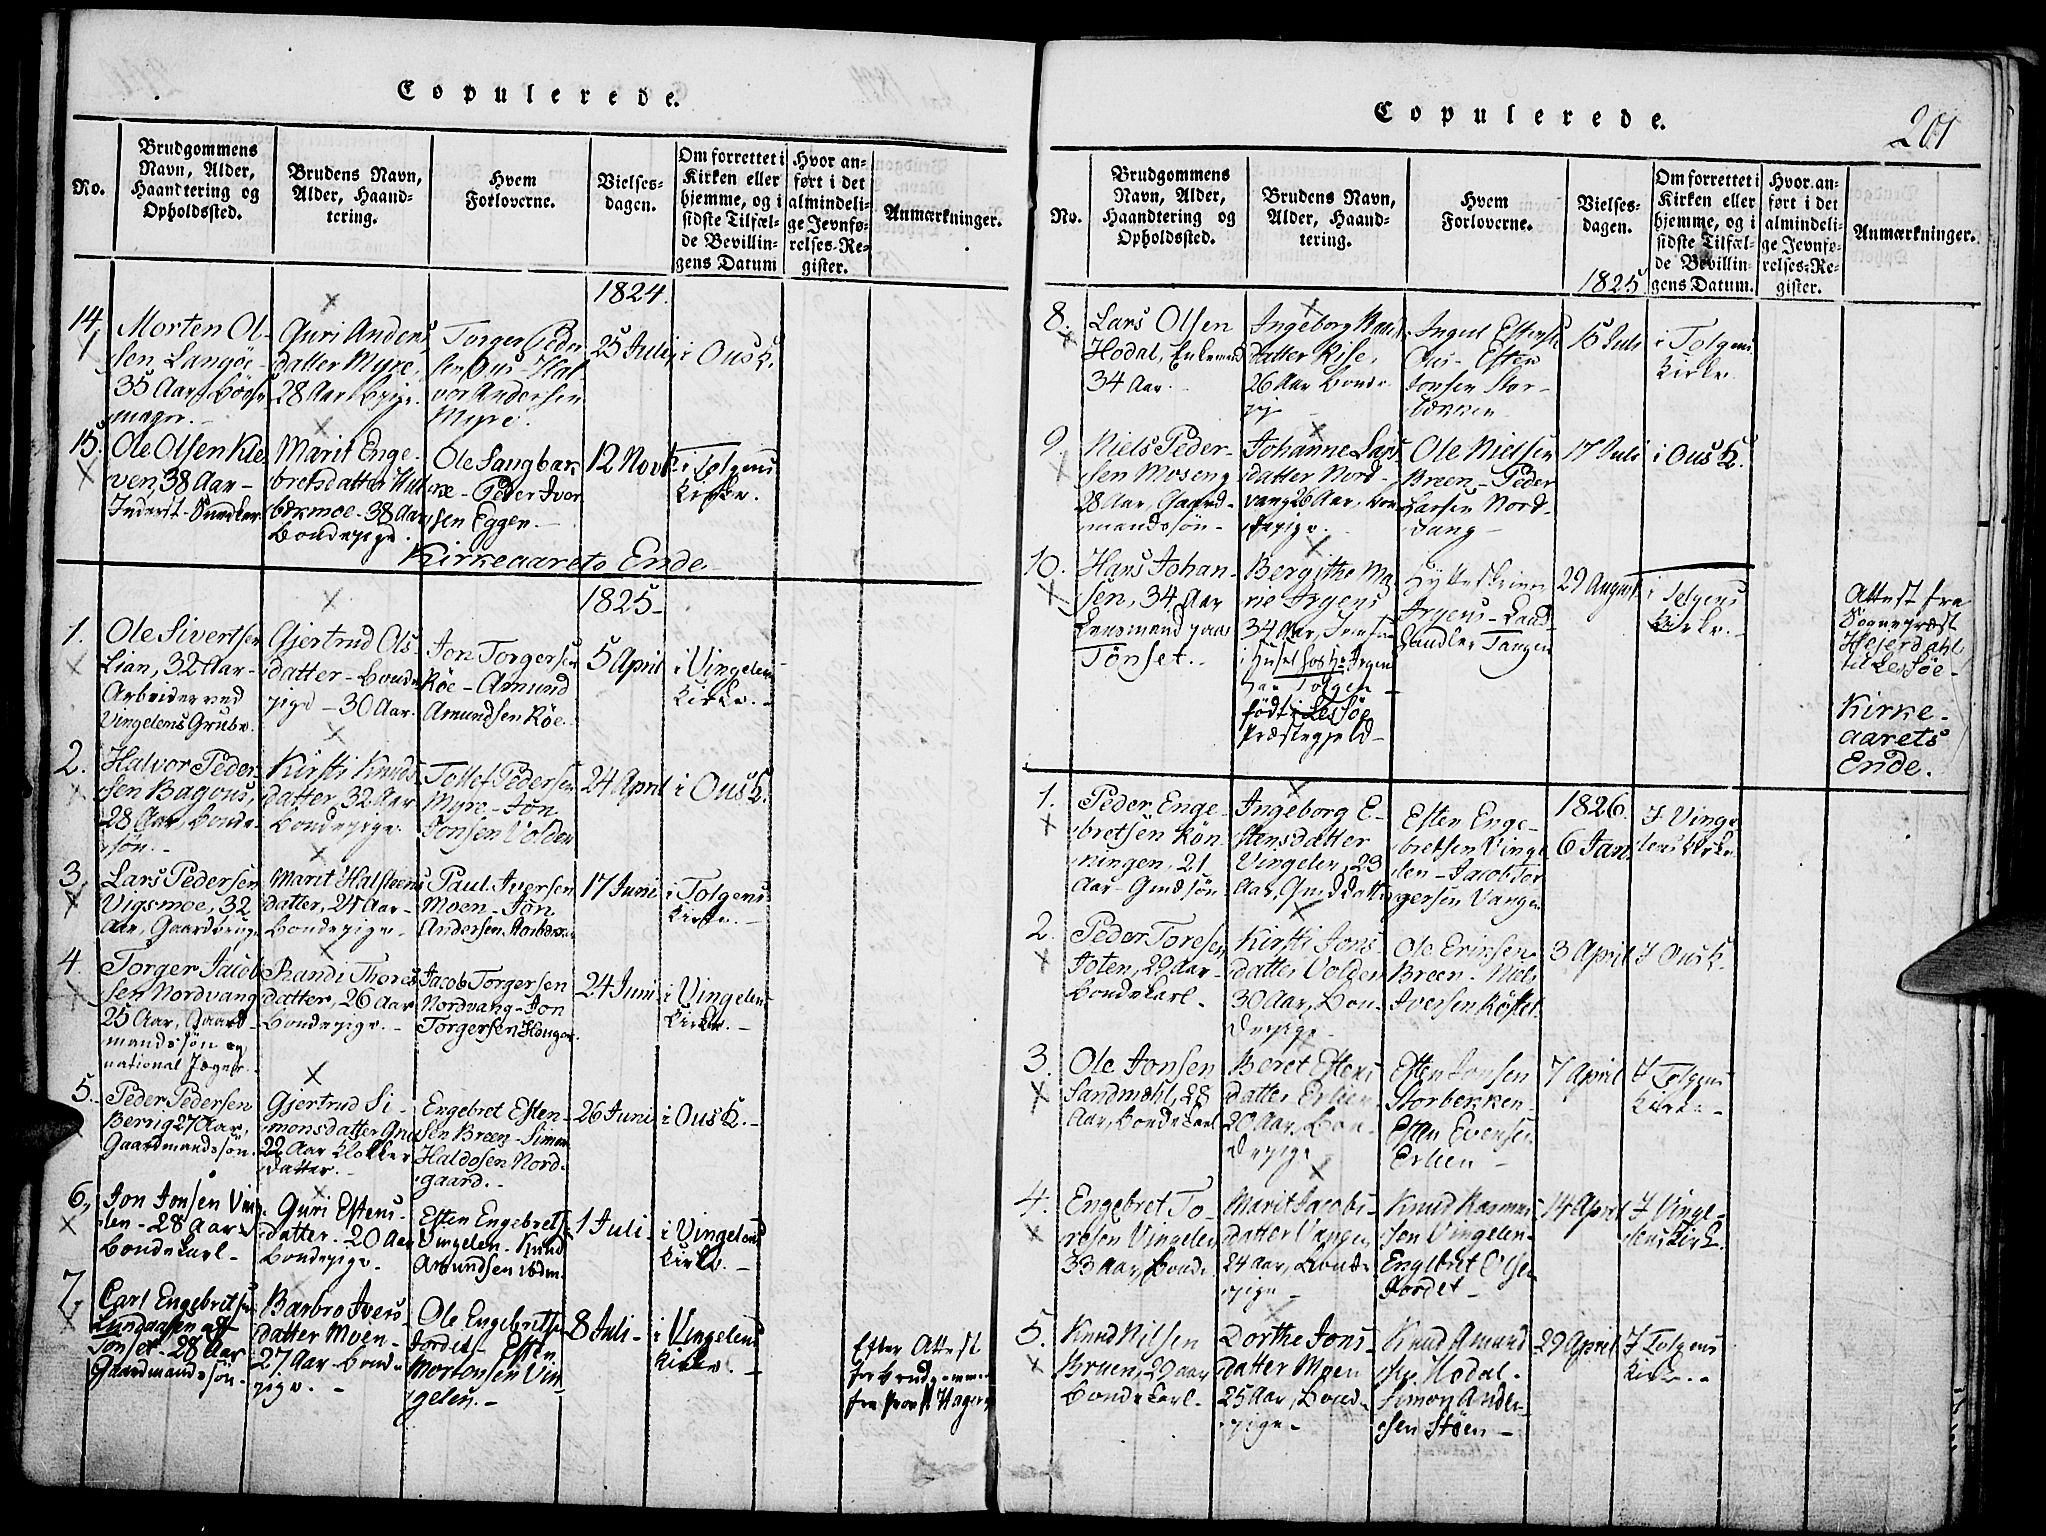 Copulerede.
No.
Brudgommens
Navn, Alder,
Haandtering og
Opholdssted.
Brudens Navn,
Alder, Haand-
tering.
Hvem
Forloverne.
Vielses-
dagen.
Om forrettet i
Kirken eller
hjemme, og i
sidste Tilfæl-
de Bevillin-
gens Datum
Hvor an-
ført i det
almindeli-
ge Jevnfø-
relses-Re-
gister.
Anmærkninger.
1824.
14.
Morten Ol-
sen Langøe
35 Aar
Guri Anders
datter Myre,
28 Aar
Torger Peder
sen Ous - Hal
vor Andersen
Myre.
25 Juli
i Ous K.
15.
Ole Olsen Kle
ven, 38 Aar -
Inderst -
Marit Enge-
bretsdatter
bækmoe - 38 Aar
Bondepige.
Ole Langbak
ke - Peder Iver
sen Eggen -
12 Novb.
i Tolgens
Kirke.
Kirkeaarets Ende -
1825 -
1.
Ole Sivertsen
Lian, 32 Aar -
Arbeider ved
Vingelens Grube.
Gjertrud Ols
datter - Bonde
pige - 30 Aar.
Jon Torgersen
Røe - Amund
Amundsen Røe.
5 April
i Vingelens
Kirke. -
2.
Halvor Peder-
sen Bagous,
28 Aar, Bonde-
søn. -
Kirsti Knuds
datter, 32 Aar
Bondepige.
Tollef Pedersen
Myre - Jon
Jonsen Volden
24 April
i Ous K.
3.
Lars Pedersen
Vigsmoe, 32
Aar, Gaardbruge
Marit Halsteens
datter, 24 Aar -
Bondepige.
Paul Iversen
Moen - Jon
Andersen
17 Juni
i Tolgens
Kirke. -
4.
Torger Jacob
sen Nordvang
25 Aar, Gaard-
mandssøn og
national Jæger.
Randi Thores
datter, 26 Aar
Bondepige. -
Jacob Torgersen
Nordvang - Jon
Torgersen Haugen.
24 Juni
i Vingelens
Kirke. -
5.
Peder Pedersen
Berrig 27 Aar,
Gaardmandssøn.
Gjertrud Si-
monsdatter
22 Aar Klokker
datter. -
Engebret Esten-
sen Breen - Simon
Haldosen Nord-
gaard. -
26 Juni
i Ous K. -
6.
Jon Jonsen Vin
len - 28 Aar -
Bondekarl -
Guri Estens-
datter - 20 Aar
Bondepige.
Esten Engebrets
Vingelen - Knud
Amundsen ibdm.
1 Juli -
i Vingelens
Kirke. -
7.
Carl Engebretsen
Lundaasen af
Tønset - 28 Aar
Gaardmandssøn.
Barbro Ivers-
datter Moen -
27 Aar - Bonde
pige. -
Ole Engebrets
Jordet - Esten
Mortensen Vin
gelen. -
8 Juli -
i Vingelens
Kirke. -
Efter Attest
for Brudgommen
fra Provst
Copulerede.
201
No.
Brudgommens
Navn, Alder,
Haandtering og
Opholdssted.
Brudens Navn,
Alder, Haand-
tering.
Hvem
Forloverne.
Vielses-
dagen.
Om forrettet i
Kirken eller
hjemme, og i
sidste Tilfæl-
de Bevillin-
gens Datum.
Hvor an-
ført i det
almindeli-
ge Jevnfø-
relses-Re-
gister.
Anmærkninger.
1825.
8.
Lars Olsen
Hodal, Enkemand
34 Aar.
Ingeborg
datter Rise,
26 Aar Bonde-
pige
Ous - Esten
Jonsen Stor-
bækken
15 Juli
i Tolgens
Kirke.
9.
Niels Peder-
sen Moseng
28 Aar, Gaard-
mandssøn -
Johanne Lars
datter Nord-
vang 26 Aar, Bon
depige.
Ole Nielsen
Breen - Peder
Larsen Nord-
vang -
17 Juli
i Ous K.
10.
Hans Johan-
sen, 34 Aar
Lensmand paa
Tönset. -
Bergithe Ma
rie Irgens
34 Aar,
født i Lessøe
Præstegjeld -
Irgens - Land-
handler Tangen
29 August
i Tolgens
Kirke. -
Attest fra
Sognepræst
Hejerdahl
til Lessøe -
Kirke-
aarets
Ende.
1.
Peder Enge-
bretsen Røn-
ningen, 21
Aar - Gmdssøn
Ingeborg E-
stensdatter
Vingelen, 23
Aar, Gmddatter
Esten Enge-
bretsen Vinge
len - Jacob Tor
gersen Vangen
1826.
6 Jan.
I Vinge-
lens Kirke
2.
Peder Toresen
Joten, 29 Aar -
Bondekarl.
Kirsti Jons-
datter Volden
30 Aar, Bon-
depige -
Ole Ericsen
Breen. Niels
Iversen Röstet
3 April
I Ous K.
3.
Ole Jonsen
Sandmæhl, 28
Aar, Bondekarl
Beret Estens
datter Erlien
20 Aar, Bon-
depige
Esten Jonsen
Storbekken -
Esten Evensen
Erlien -
7 April
I Tolgens
Kirke -
4.
Engebret To-
resen Vingelen
33 Aar, Bonde
Marit Jacobs-
datter Vangen
24 Aar, Bonde
pige -
Knud Rasmus-
sen Vingelen -
Engebret Olsen
Jordet -
14 April
I Vinge-
lens Kirk.
5.
Knud Nilsen
Bruen, 29 Aar
Bondekarl.
Dorthe Jons-
datter Moen
25 Aar, Bonde
pige -
Knud Amund
sen Hodal.
Simon Ander-
sen Støen -
29 April
I Tolgens
Kirke. -